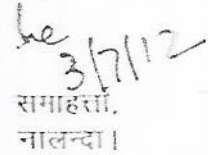 3/7/12
समाहर्ता,
नालन्दा।